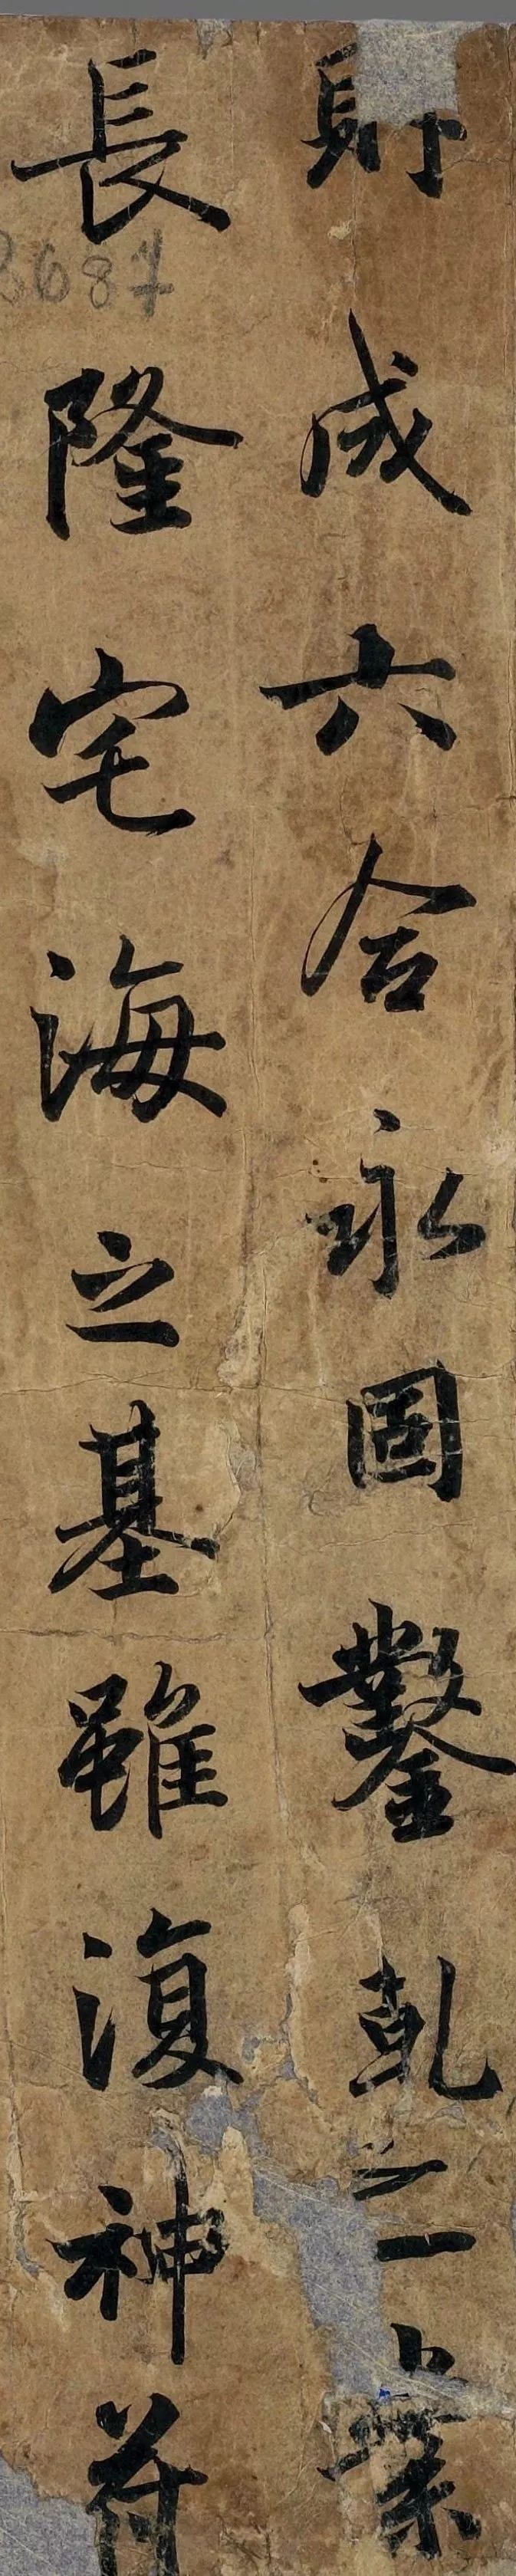 則成六合永固鑿乹之業
長隆宅海之基雖復神符
3681